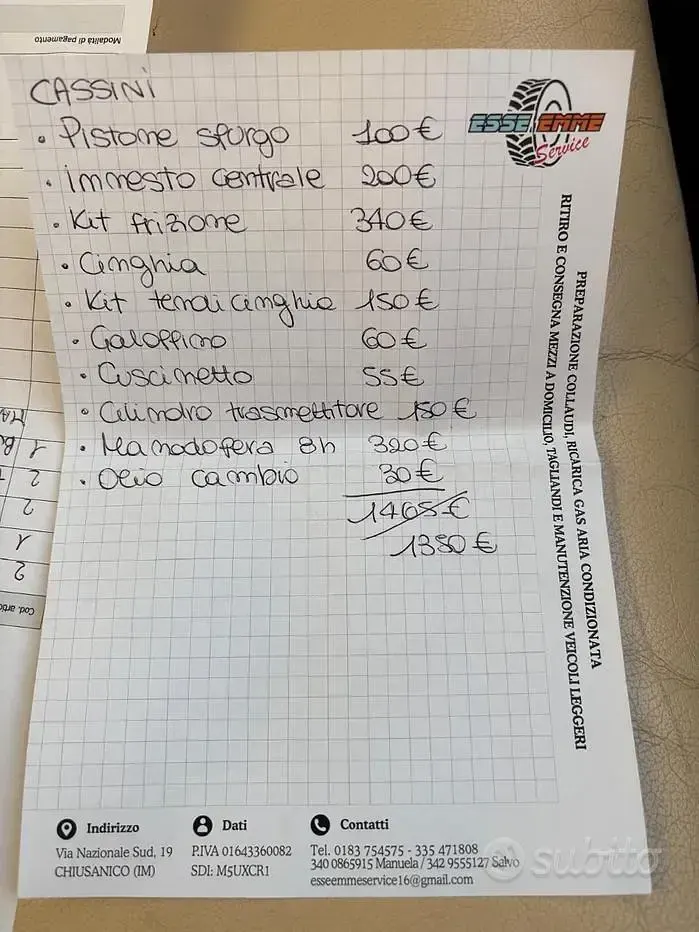 Modalità di pagamento
CASSINI
• Pistone spurgo 100€
• Innesto centrale 200€
• Kit frizione 340€
• Cinghia 60€
• Kit tendicinghia 150€
• Galoppino 60€
• Cuscinetto 55€
• Cilindro trasmettitore 150€
• Manodopera 8h 320€
• Olio cambio 30€
1465€
1350€
ESSE EMME
Service
PREPARAZIONE COLLAUDI, RICARICA GAS ARIA CONDIZIONATA
RITIRO E CONSEGNA MEZZI A DOMICILIO, TAGLIANDI E MANUTENZIONE VEICOLI LEGGERI
1
2
2
1
2
Cod. artic
Indirizzo
Via Nazionale Sud, 19
CHIUSANICO (IM)
Dati
P.IVA 01643360082
SDI: M5UXCR1
Contatti
Tel. 0183 754575 - 335 471808
340 0865915 Manuela / 342 9555127 Salvo
esseemmeservice16@gmail.com
subito